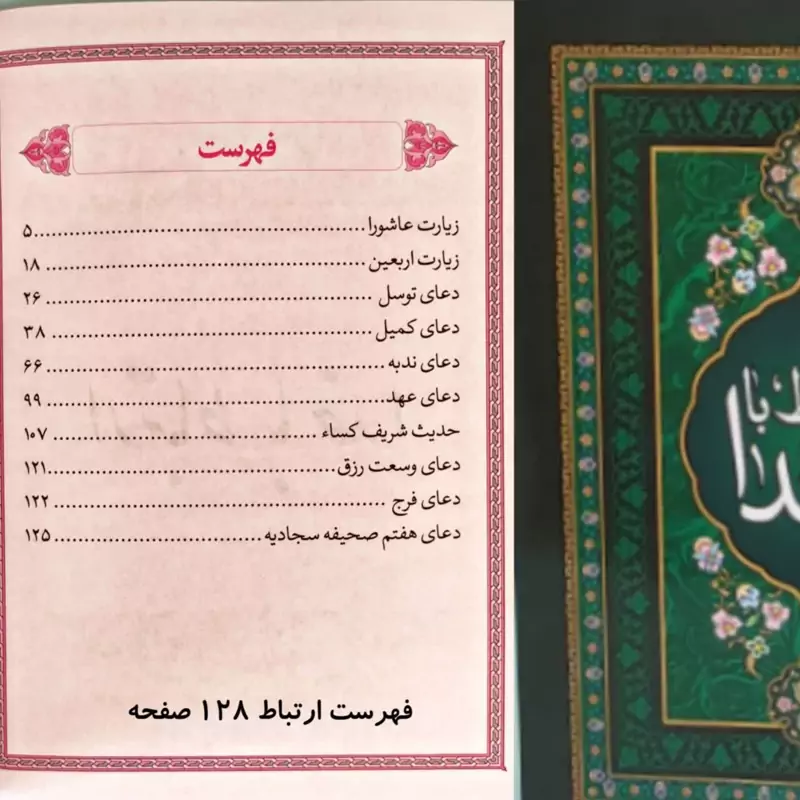 فهرست
زیارت عاشورا.....................................................۵
زیارت اربعین..................................................... ۱۸
دعای توسل ..................................................... ۲۶
دعای کمیل..................................................... ۳۸
دعای ندبه ......................................................۶۶
دعای عهد...................................................... ۹۹
حدیث شریف کساء ........................................... ۱۰۷
دعای وسعت رزق...............................................۱۲۱
دعای فرج ..................................................... ۱۲۲
دعای هفتم صحیفه سجادیه...................................۱۲۵
فهرست ارتباط ۱۲۸ صفحه
با